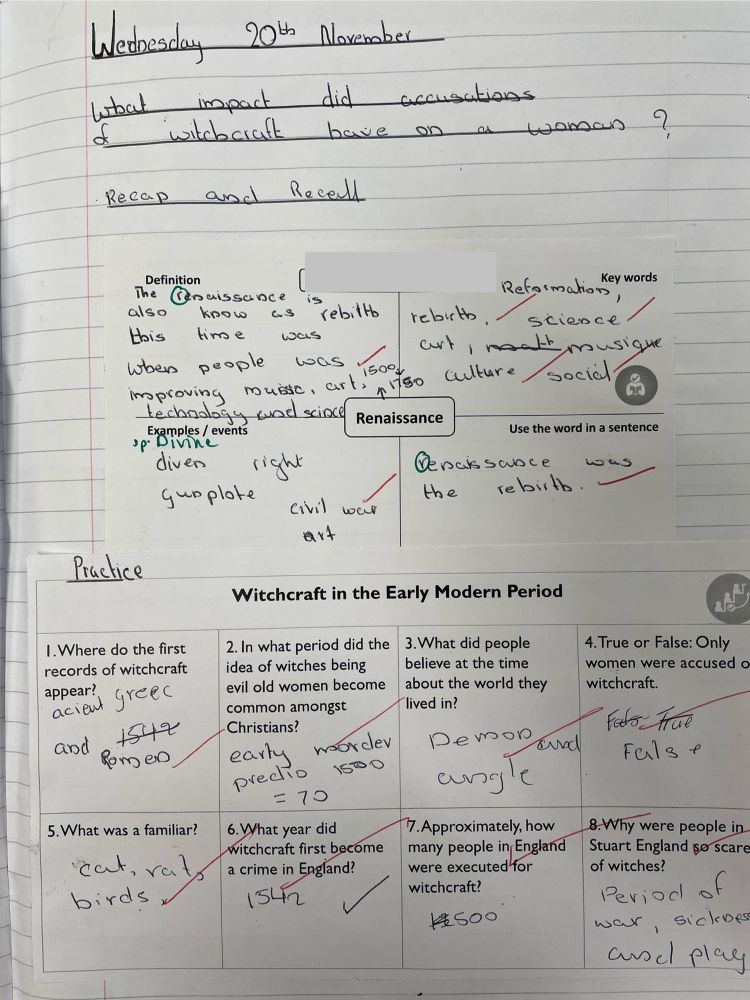 Wednesday 20th November
What impact did accusations
of witchcraft have on a woman ?
Recap and Recall
Definition
The renaissance is
also know as rebitth
this time was
when people was
improving music, art, 1500
1750
technology and scince
Key words
Reformation,
rebirth, science
art, musique
culture social
Renaissance
Examples / events
sp. Divine
diven right
gunplote
civil war
art
Use the word in a sentence
renaissance was
the rebirth.
Practice
Witchcraft in the Early Modern Period
1.Where do the first
records of witchcraft
appear?
acient greec
and 1542
Romen
2. In what period did the
idea of witches being
evil old women become
common amongst
Christians?
early morder
predio 1500
= 70
3.What did people
believe at the time
about the world they
lived in?
Demon and
angle
4.True or False: Only
women were accused o
witchcraft.
Fals True
False
5.What was a familiar?
cat, rat,
birds,
6.What year did
witchcraft first become
a crime in England?
1542
7.Approximately, how
many people in England
were executed for
witchcraft?
500
8.Why were people in
Stuart England so scare
of witches?
Period of
war, sicknes
and play